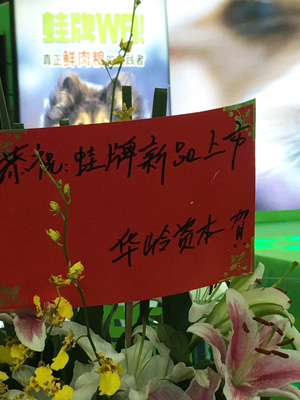 蛙牌WA!
真正鲜肉粮的实践者
恭祝:蛙牌新品上市
华岭资本 贺